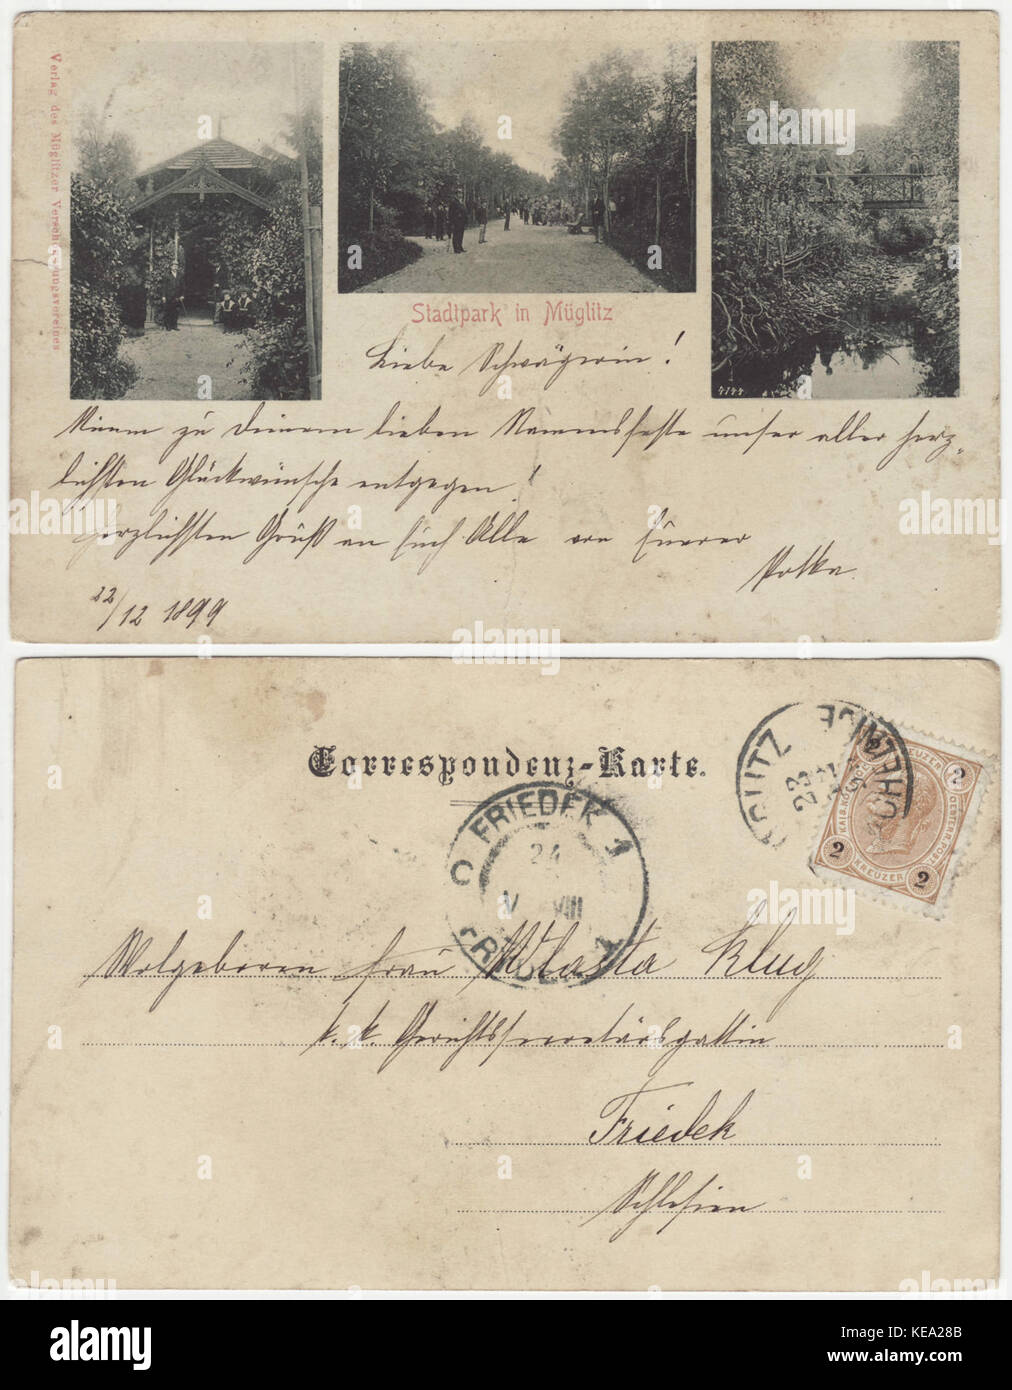 Verlag des Müglitzer Verschönerungsvereines
4144
Stadtpark in Müglitz
Liebe Schwägerin!
Nimm zu Deinem lieben Namensfeste unser aller herz-
lichsten Glückwünsche entgegen!
Herzlichsten Gruß an Euch Alle von Eurer
22/12 1899
Correspondenz-Karte.
FRIEDEK 1
24
VIII
2 KREUZER 2
Wolgeboren Frau Vlasta Klug
k. k. Gerichtssecretärsgattin
Friedek
Schlesien
alamy
Image ID: KEA28B
www.alamy.com